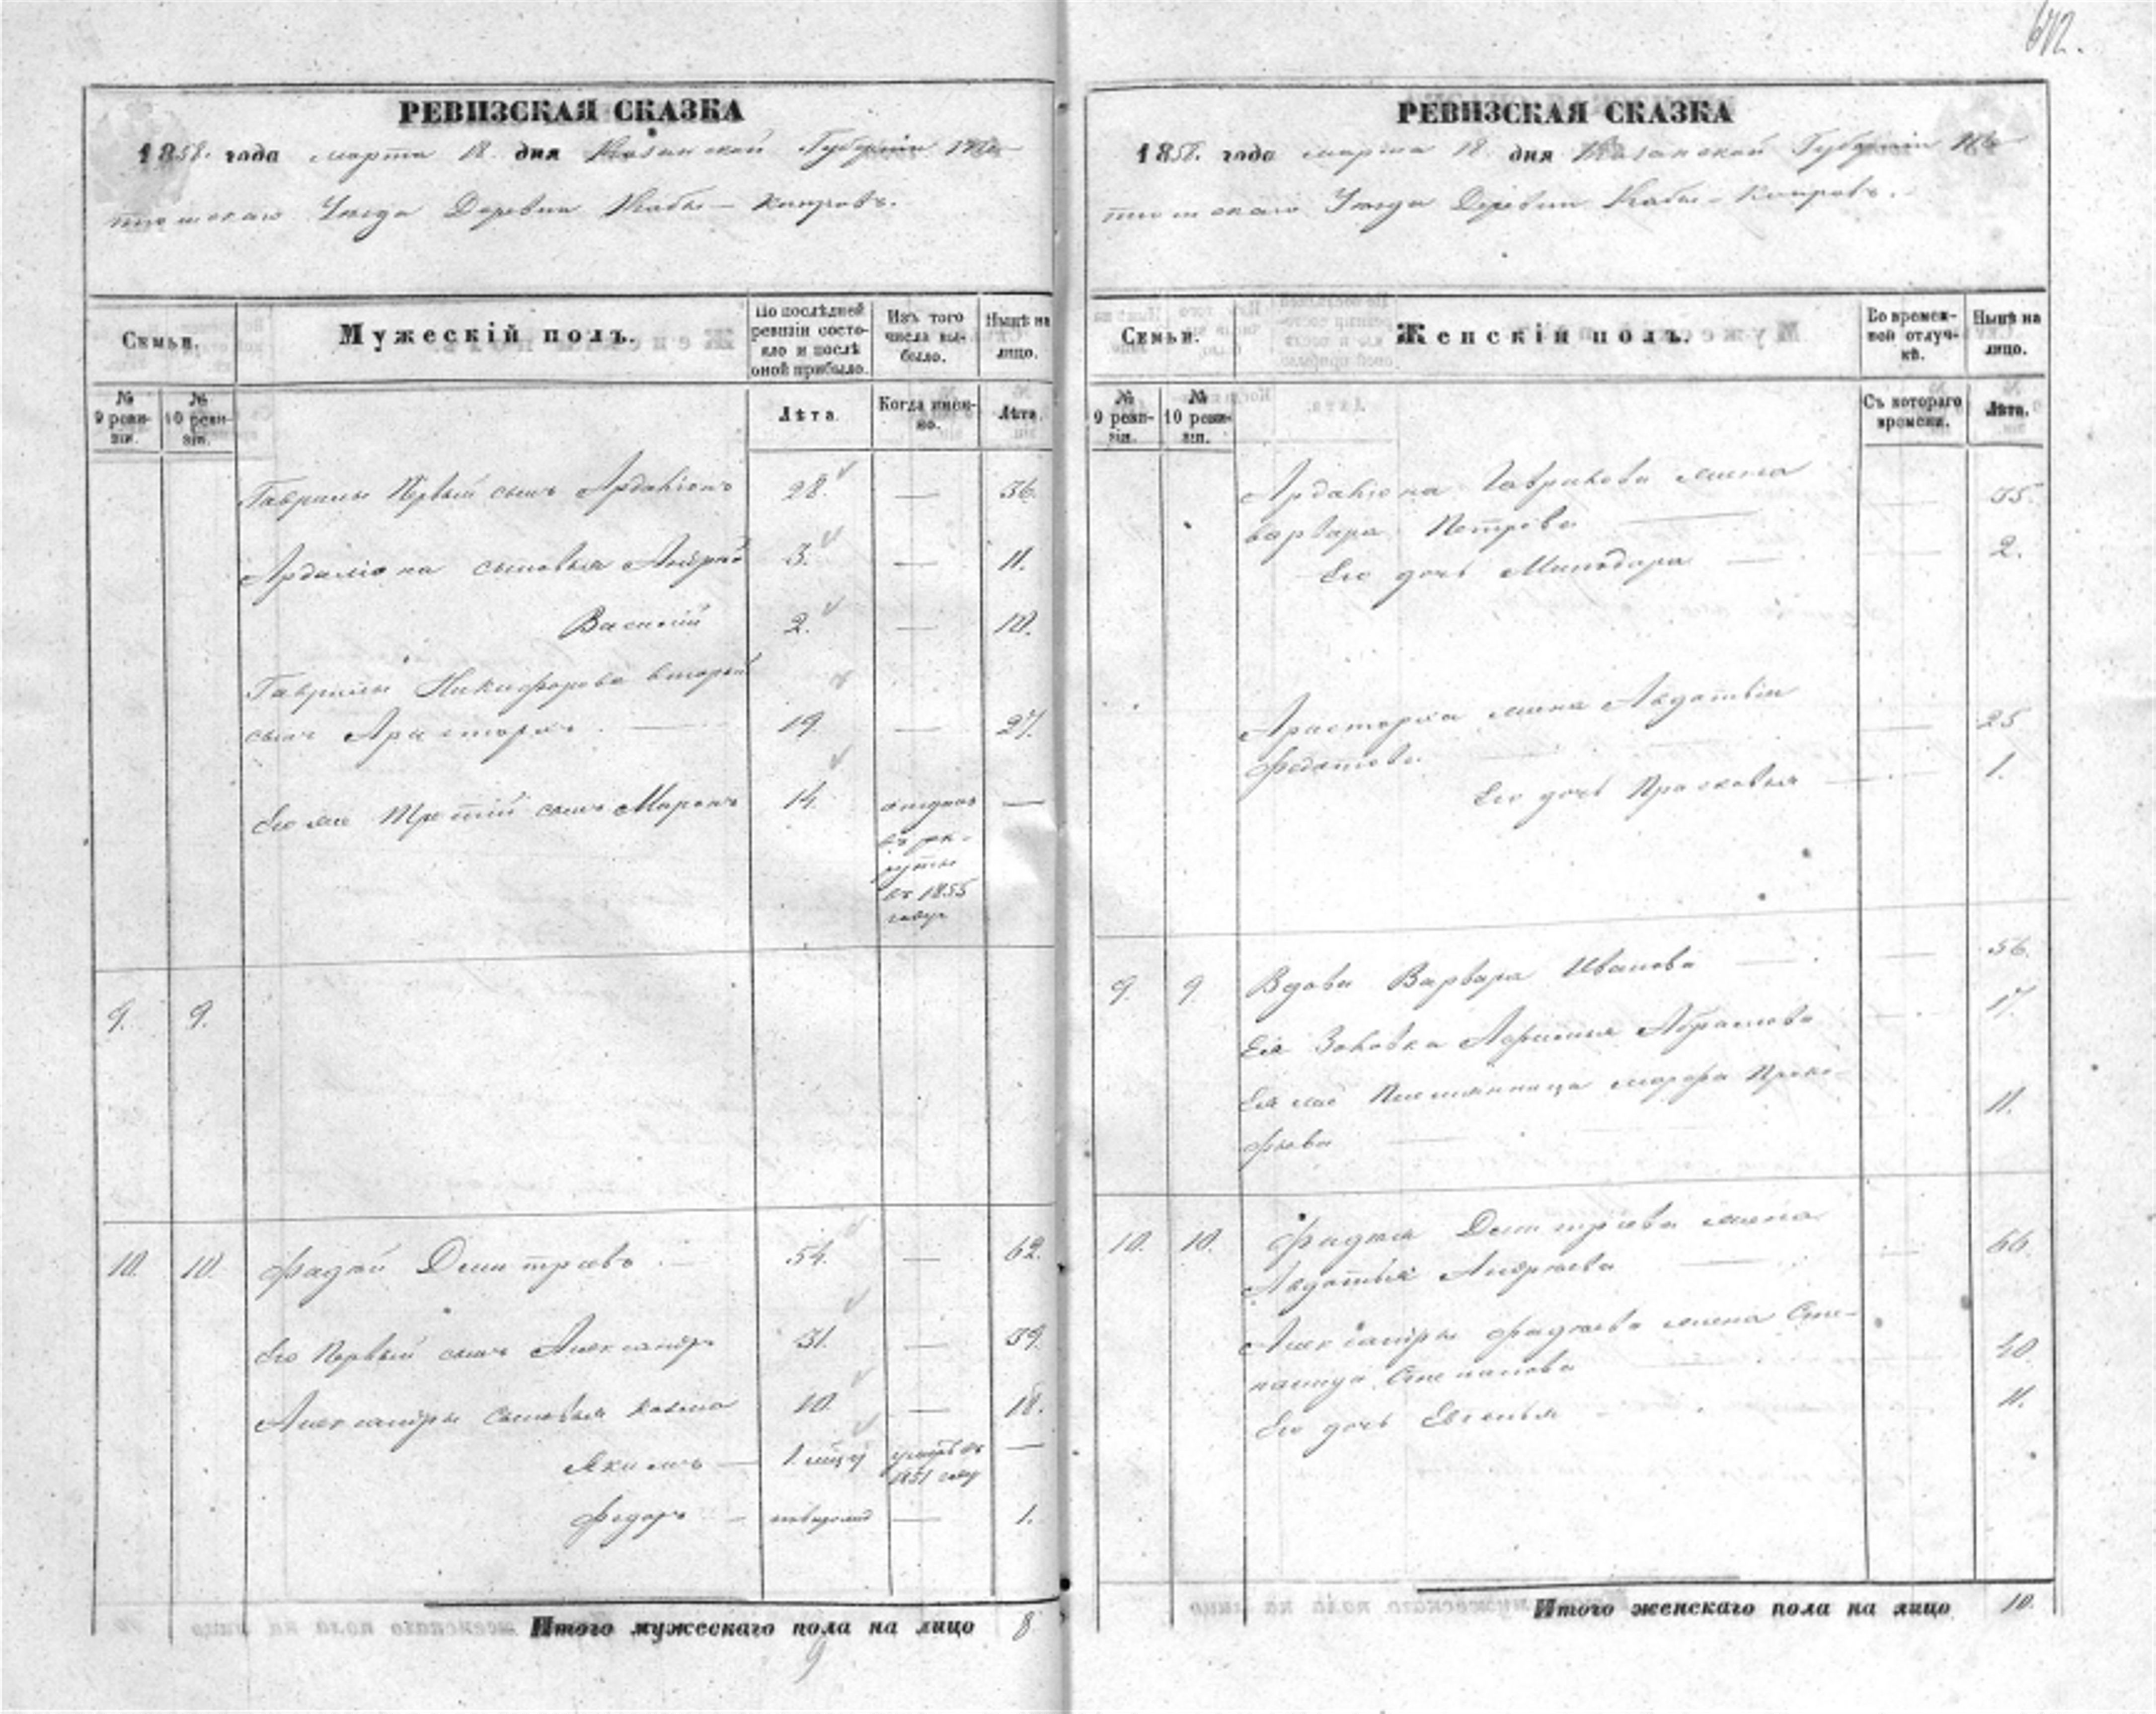 642.
РЕВИЗСКАЯ СКАЗКА
1858. года марта 18. дня Казанской Губернiи
Уезда Деревни Кабы-Копровъ.
Семьи.
Мужескiй полъ.
По последней ревизiи состояло и после оной прибыло.
Изъ того числа выбыло.
Ныне на лицо.
№ 9 ревизiи.
№ 10 ревизiи.
Лета.
Когда именно.
Лета.
Гаврилы Первый сынъ Ардалiонъ 28. — 36.
Ардалiона сыновья Андрей 3. — 11.
Василiй 2. — 10.
Гаврилы Никифорова второй
сынъ Аристархъ 19. — 27.
Его же Третiй сынъ Миронъ 14. отданъ —
въ рек-
руты
въ 1855
году
9. 9.
10. 10. Фадей Дмитрiевъ 54. — 62.
Его Первый сынъ Александръ 31. — 39.
Александры сыновья Козма 10. — 18.
Якимъ — 1. умеръ въ —
1851 году
Федоръ — — 1.
Итого мужескаго пола на лицо 8
9
РЕВИЗСКАЯ СКАЗКА
1858. года марта 18. дня Казанской Губернiи
Уезда Деревни Кабы-Копровъ.
Семьи.
Женскiй полъ.
Во временной отлучке.
Ныне на лицо.
№ 9 ревизiи.
№ 10 ревизiи.
Съ котораго времени.
Лета.
Ардалiона Гаврилова жена
Варвара Петрова — 35.
Его дочь Минодора — 2.
Аристарха жена Авдотья
Федотова — 25
Его дочь Прасковья — 1.
9. 9. Вдова Варвара Иванова — 56.
Ея Золовка Абрамова 17.
Ея же Племянница Проко-
фьева 11.
10. 10. Фадея Дмитрiева жена
Авдотья Андреева — 66.
Александры Фадеева жена Сте-
панида Степанова 40.
Его дочь Евгенья 11.
Итого женскаго пола на лицо 10.